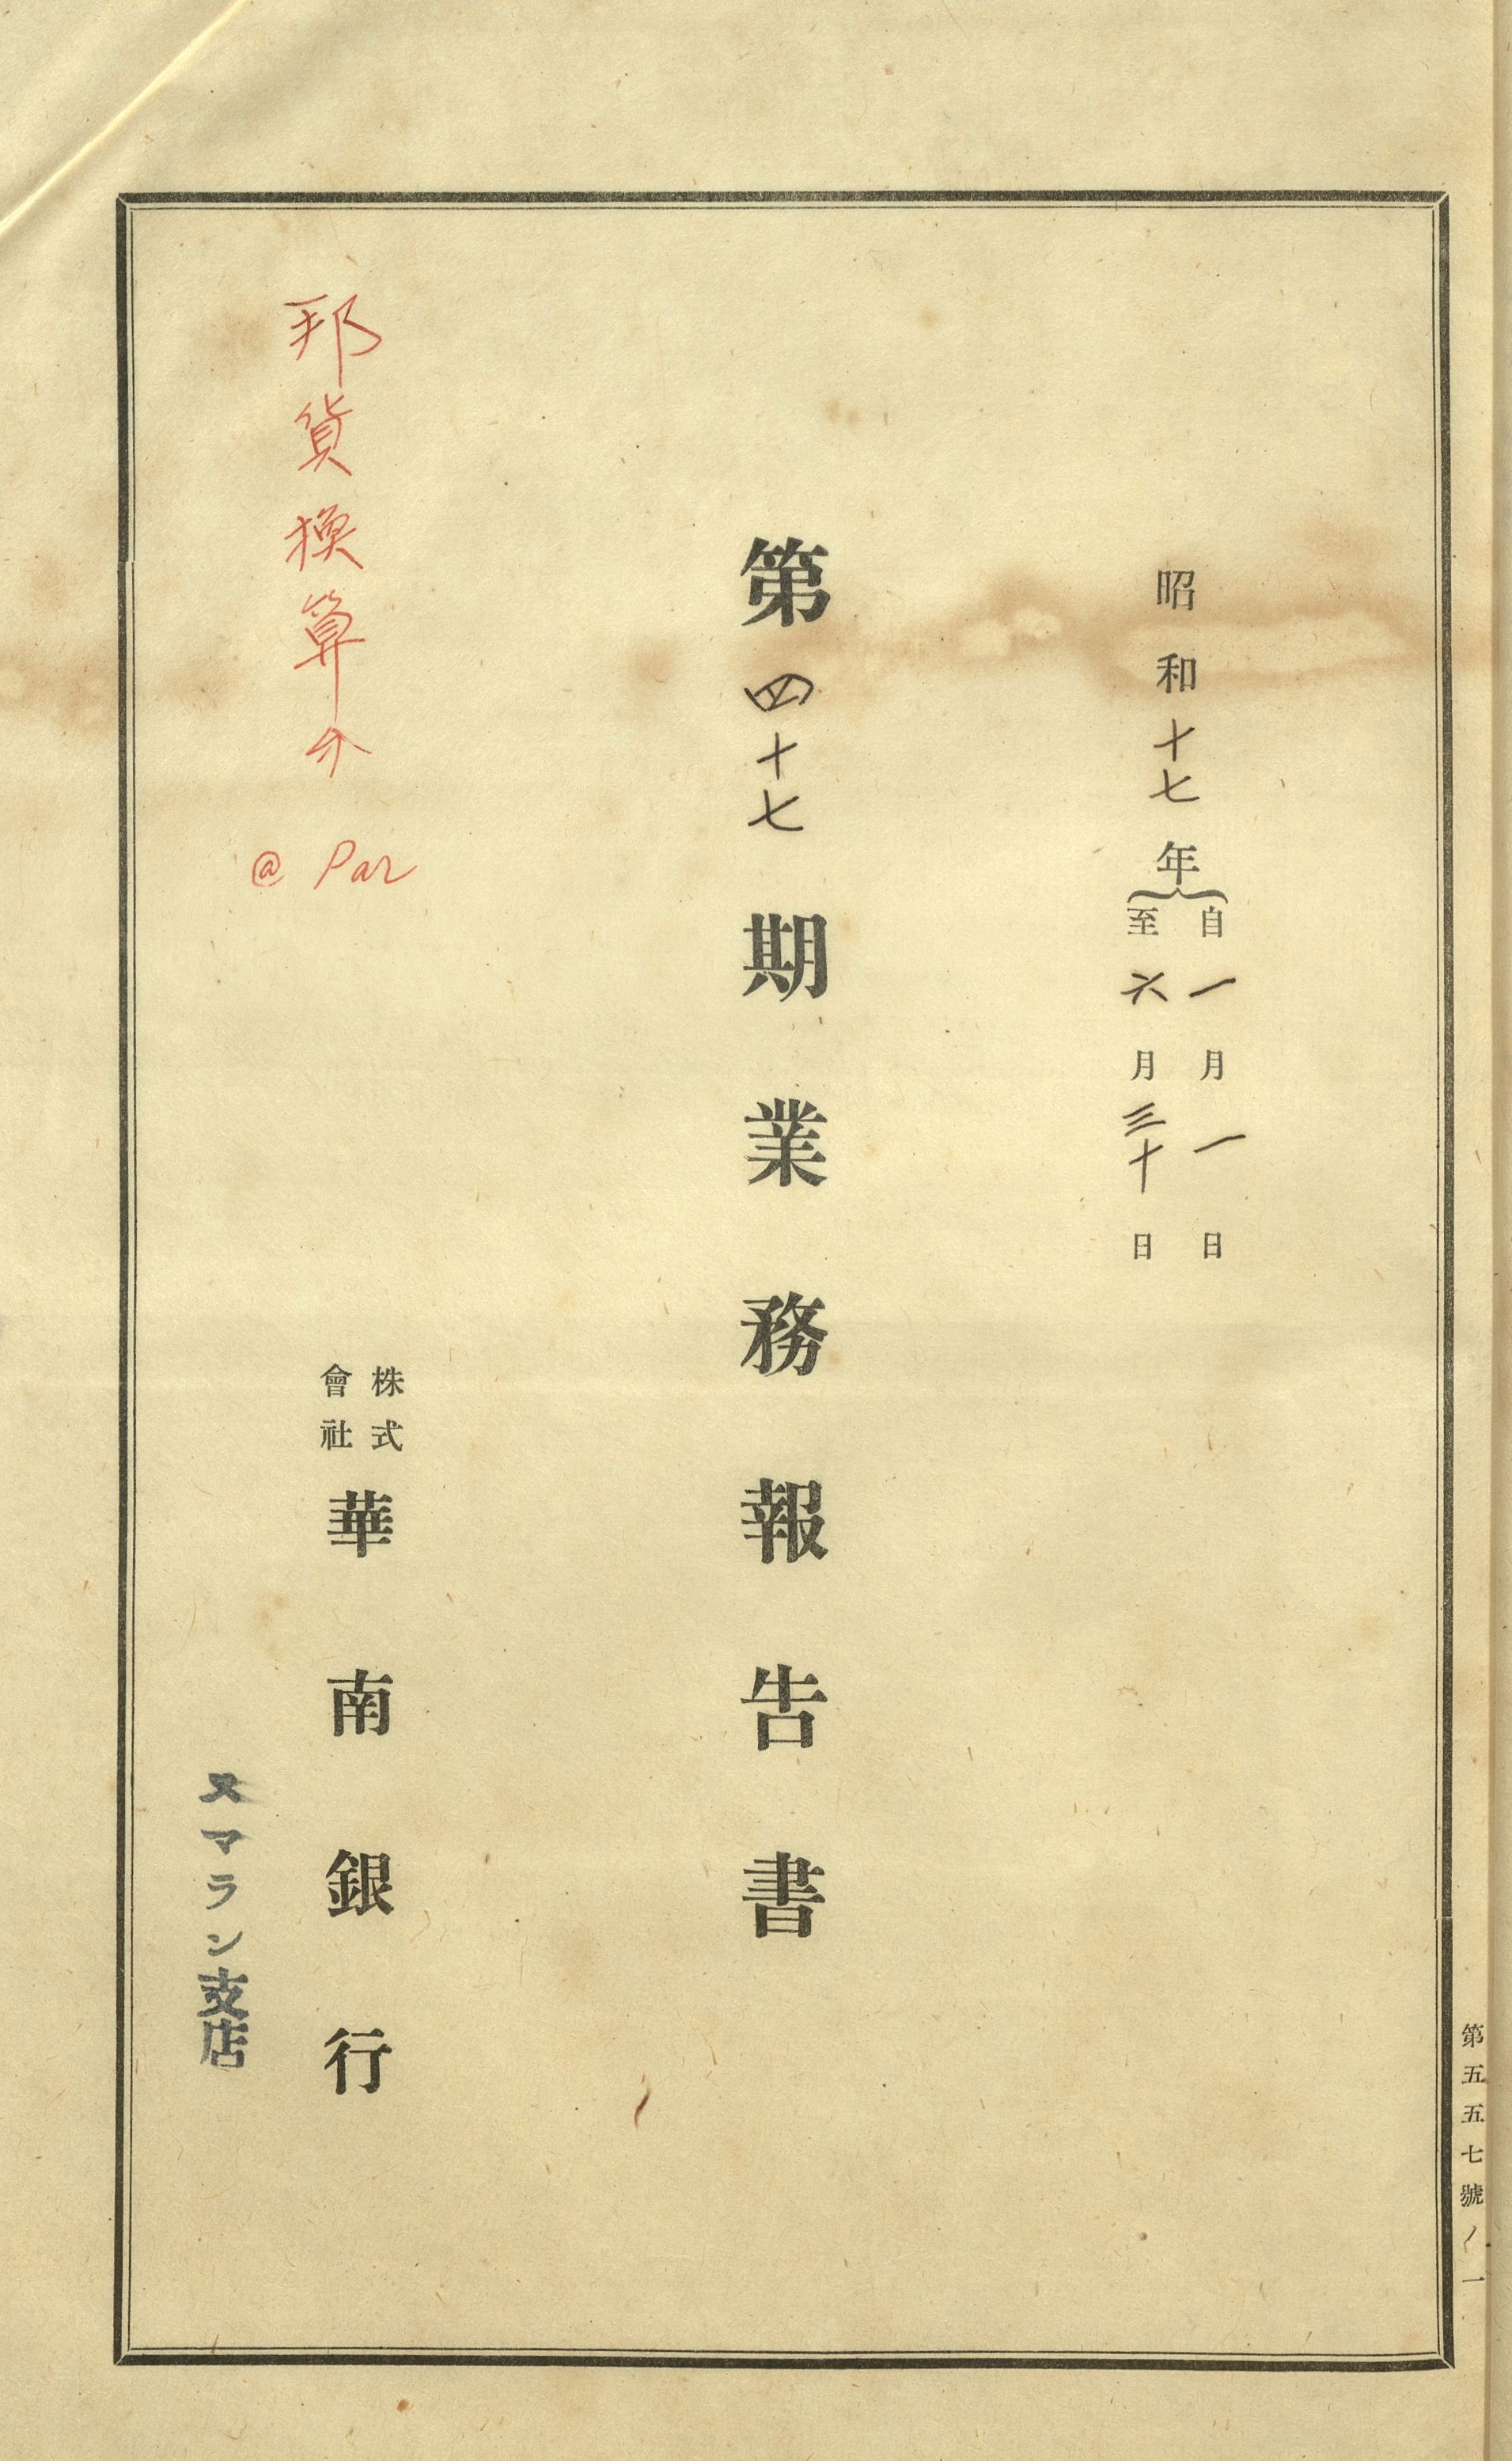 第五五七號ノ一
昭和十七年
自一月一日
至六月三十日
第四十七期業務報告書
株式
會社
華南銀行
スマラン支店
邦貨換算分
@ Par